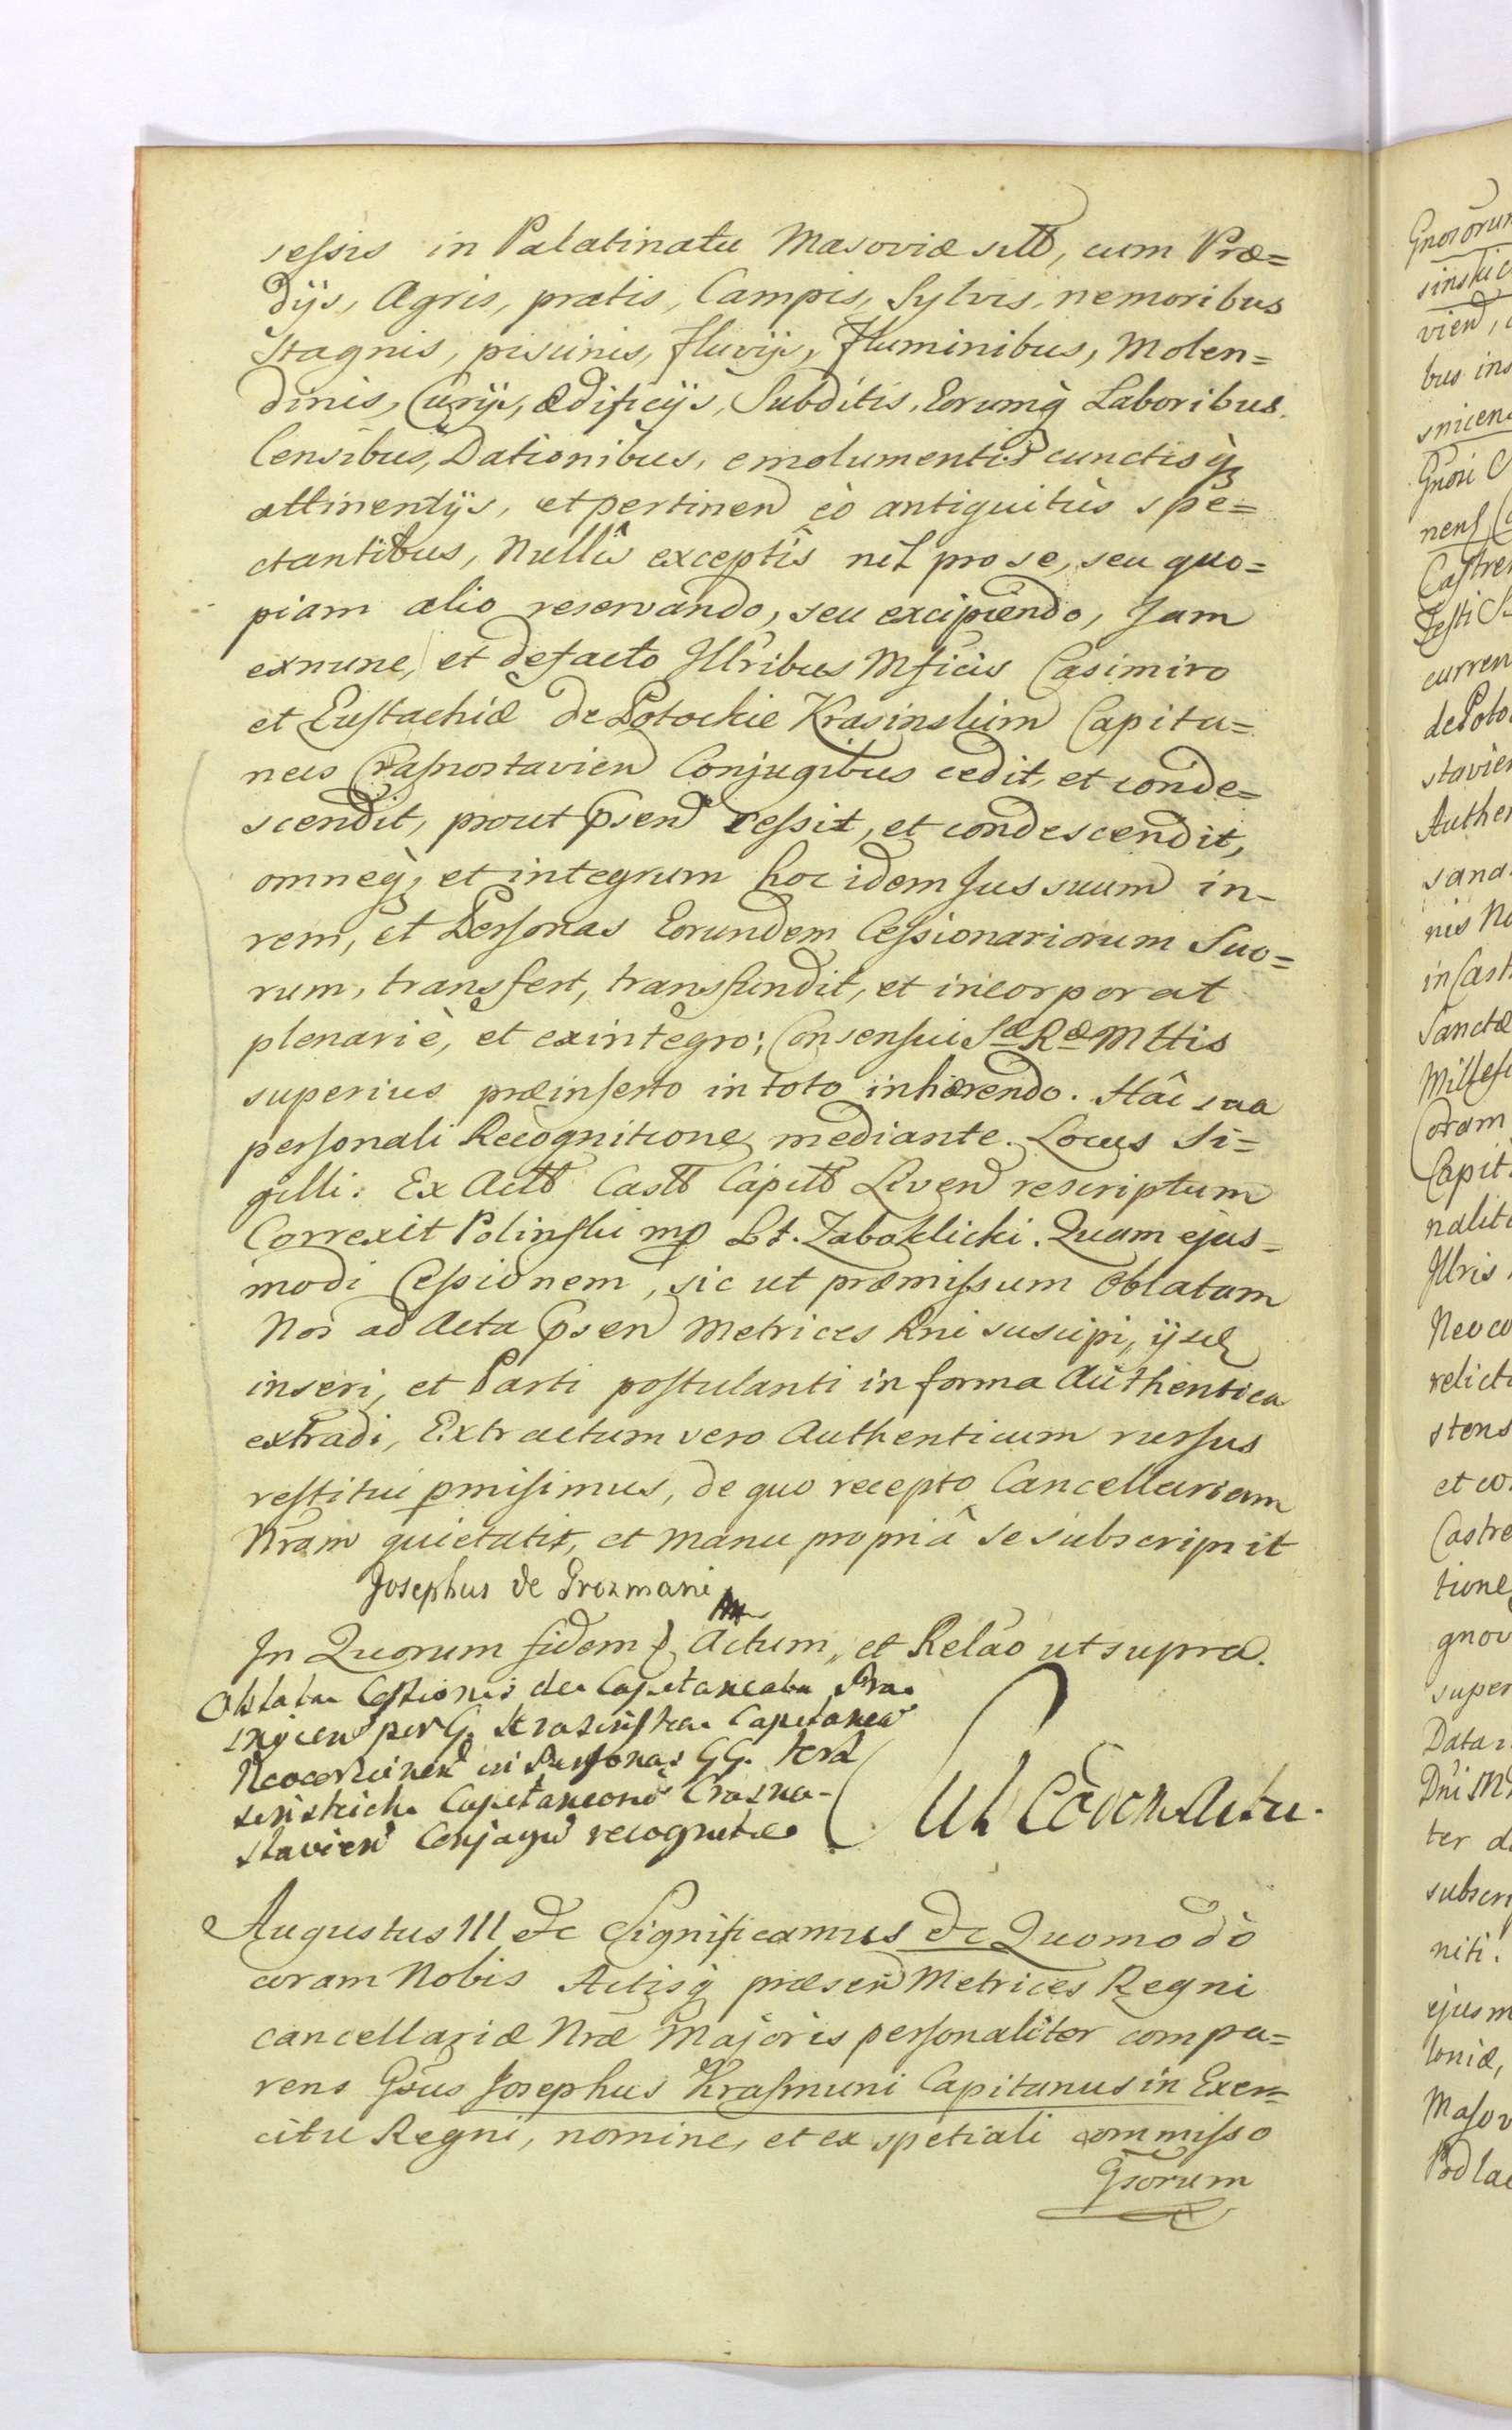 sessis in Palatinatu Masoviæ sittt, cum Præ=
dijs, Agris, pratis, Campis, Sylvis, nemoribus
Stagnis, piscinis, fluvijs, Fluminibus, Molen=
dinis, Curijs, ædificijs, Subditis, Eorumq̀ Laboribus.
Censibus, Dationibus, emolumentis cunctisq̀
attinentijs, et pertinen eò antiquitùs spe=
ctantibus, Nullis exceptis nil pro se, seu quo=
piam alio reservando, seu excipiendo, Jam
exnunc, et defacto Illribus Mficis Casimiro
et Eustachiæ de Potockie Krasinskim Capita=
neis Crasnostavien Conjugibus cedit, et conde=
scendit, prout psen cessit, et condescendit,
omneq̀, et integrum hoc idem Jus suum in-
rem, et Personas Eorundem Cessionariorum Suo=
rum, transfert, transfundit, et incorporat
plenariè, et exintegro; Consensui Sæ Ræ Mttis
superius præinserto in toto inhærendo. Hâc sua
personali Recognitione mediante. Locus Si=
gilli: Ex Actt Castt Capitt Liven rescriptum
Correxit Polinski mp Lt. Zaboklicki. Quam ejus=
modi Cessionem, sic ut præmissum Oblatam
Nos ad Acta psen Metrices Rni suscipi, ijsq
inseri, et Parti postulanti in forma Authentica
extradi, Extractum vero Authenticum rursus
restitui pmisimus, de quo recepto Cancellariam
Nram quietatit, et manu propriâ se subscripsit
Josephus de Grozmani
In Quorum fidem & Actum, et Relao ut supra.
Oblata Cessionis de Capitaneatu Pra-
snycen per G. Krasinska Capitanea
Neocorcinen in Personas GG. Kra
sinskich Capitaneorū Crasno-
stavien Conjugū recognitæ
Sub Eodem Actu.
Augustus III &c Significamus &c Quomodò
coram Nobis Actisq̀ præsen Metrices Regni
cancellariæ Nræ Majoris personaliter compa=
rens Gsus Josephus Krasmuni Capitanus in Exer=
citu Regni, nomine, et ex spetiali commisso
Gsorum